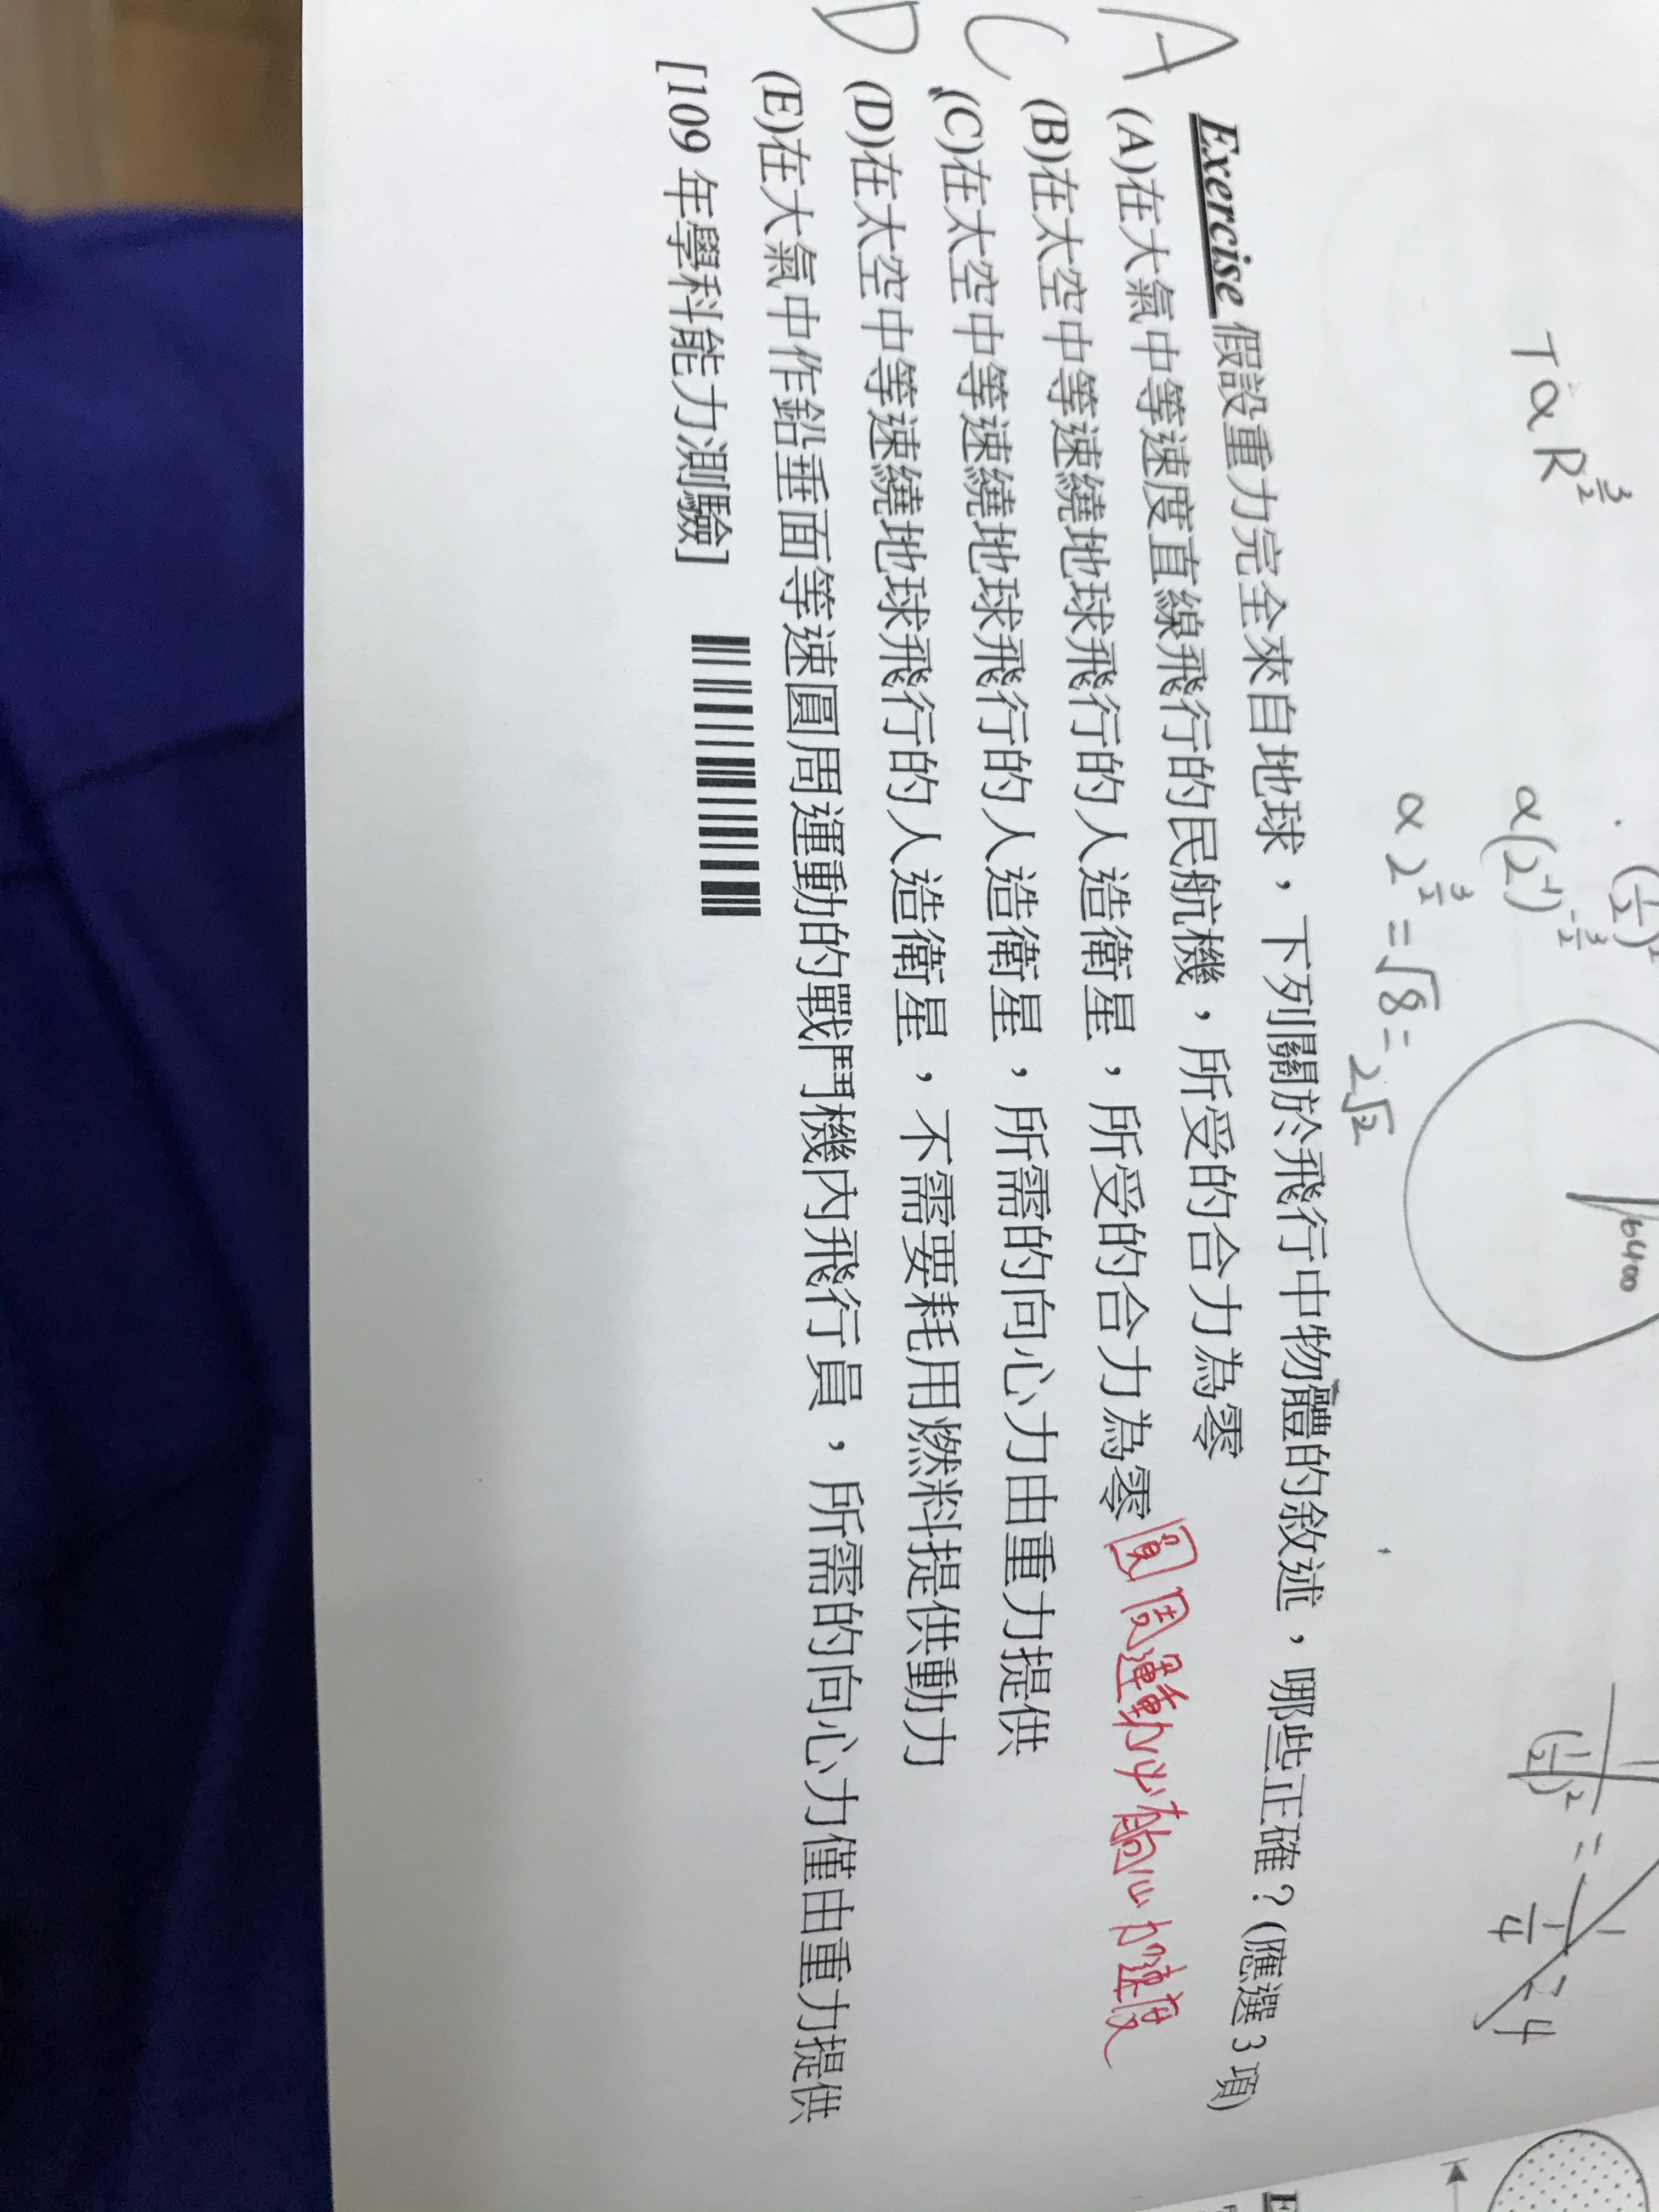 T α R^{3/2}
α(2^{-1})^{-3/2}
α 2^{3/2} = √8 = 2√2
6400
Exercise 假設重力完全來自地球，下列關於飛行中物體的敘述，哪些正確？(應選 3 項)
A (A)在大氣中等速度直線飛行的民航機，所受的合力為零
(B)在太空中等速繞地球飛行的人造衛星，所受的合力為零 圓周運動必有向心加速度
C (C)在太空中等速繞地球飛行的人造衛星，所需的向心力由重力提供
D (D)在太空中等速繞地球飛行的人造衛星，不需要耗用燃料提供動力
(E)在大氣中作鉛垂面等速圓周運動的戰鬥機內飛行員，所需的向心力僅由重力提供
[109 年學科能力測驗]